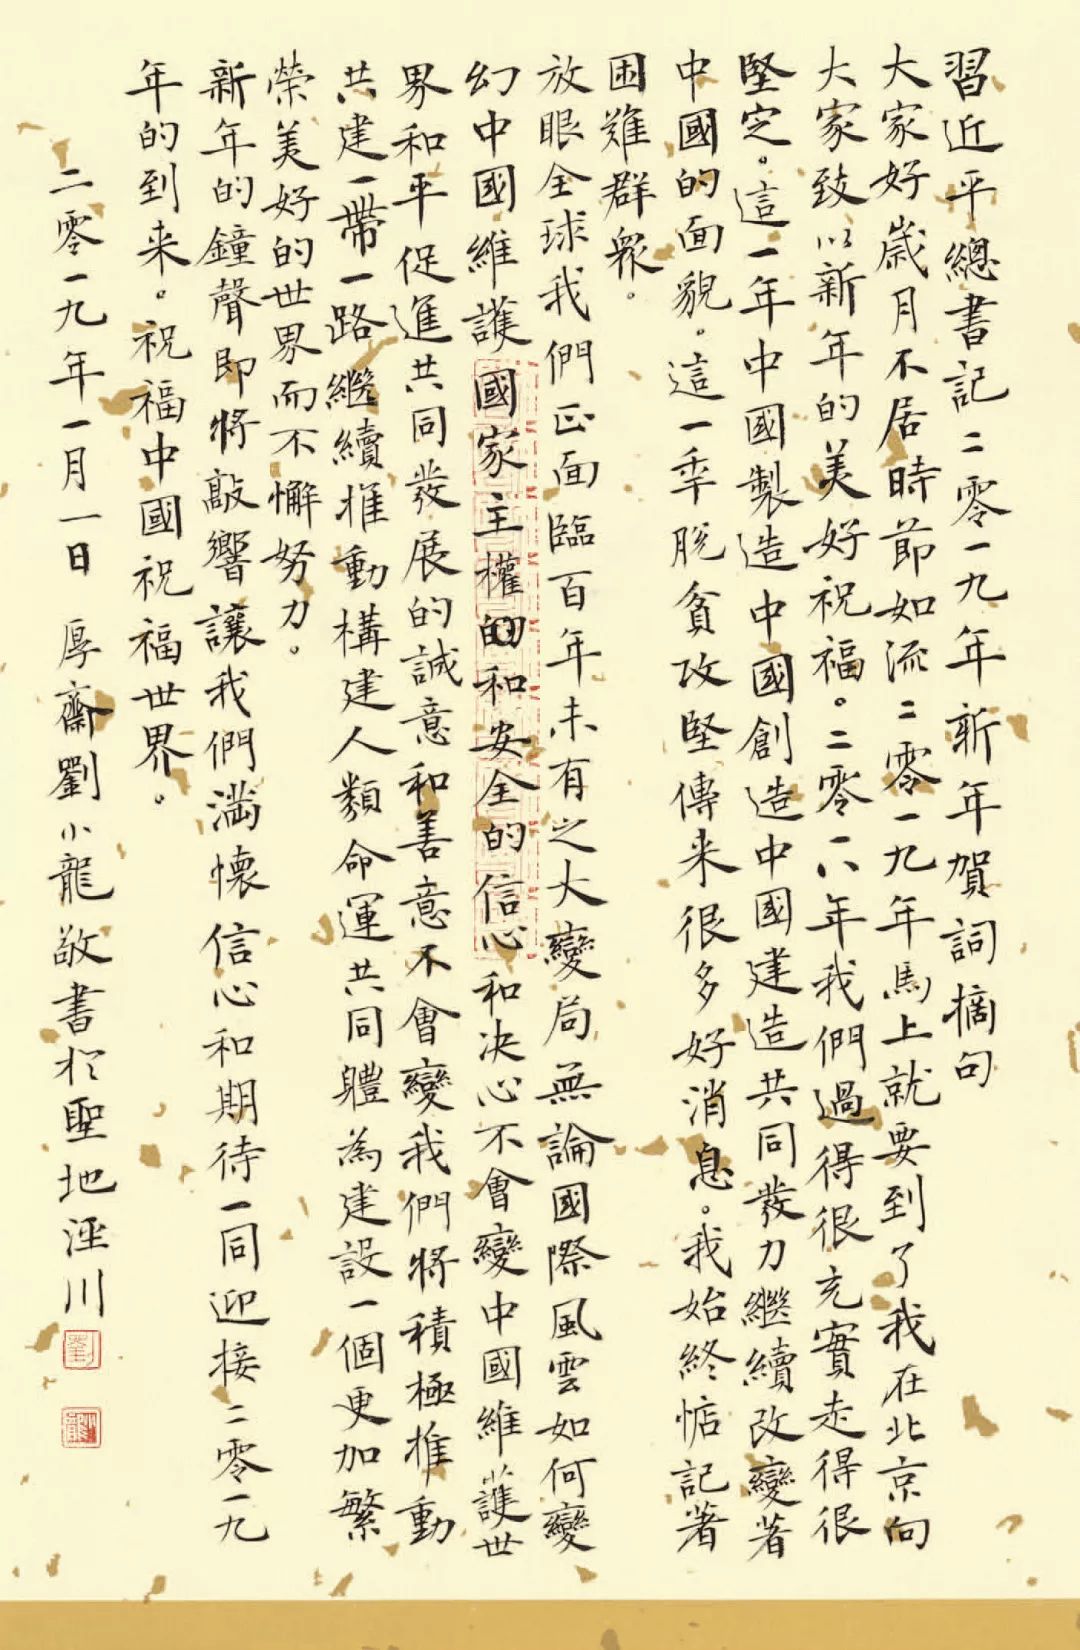 習近平總書記二零一九年新年賀詞摘句
大家好歲月不居時節如流二零一九年馬上就要到了我在北京向
大家致以新年的美好祝福。二零一八年我們過得很充實走得很
堅定。這一年中國製造中國創造中國建造共同發力繼續改變著
中國的面貌。這一年脫貧攻堅傳来很多好消息。我始終惦記著
困難群衆。
放眼全球我們正面臨百年未有之大變局無論國際風雲如何變
幻中國維護國家主權的和安全的信心和决心不會變中國維護世
界和平促進共同發展的誠意和善意不會變我們將積極推動
共建一帶一路繼續推動構建人類命運共同體為建設一個更加繁
榮美好的世界而不懈努力。
新年的鐘聲即將敲響讓我們滿懷信心和期待一同迎接二零一九
年的到来。祝福中國祝福世界。
二零一九年一月一日 厚齋劉小龍敬書於聖地涇川
劉